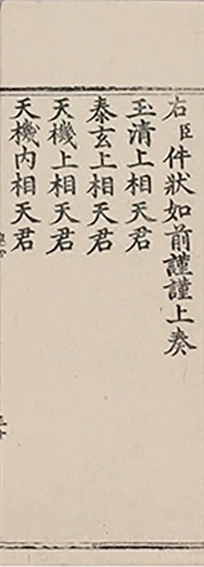 右臣件狀如前謹謹上奏
玉清上相天君
泰玄上相天君
天機上相天君
天機內相天君